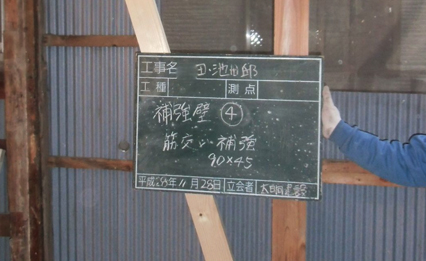 工事名 旧・池田邸
工種 測点
補強壁 ④
筋交い補強
90×45
平成25年11月28日 立会者 大明建設